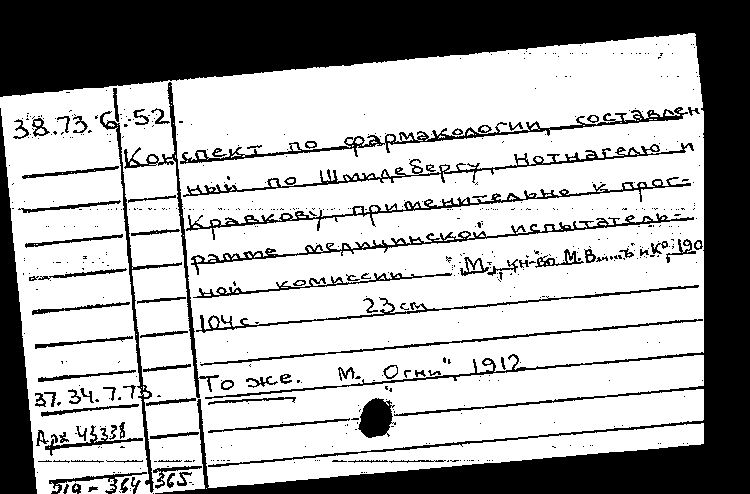 38.73.6.52.
Конспект по фармакологии, составлен-
ный по Шмидебергу, Нотнагелю и
Кравкову, применительно к прог-
рамме медицинской испытатель-
ной комиссии. М., кн-во М.В. и К°, 190
104 с. 23 cm
37.34.7.73. То же. М. "Огни", 1912
Арх 43338
219 - 364-365